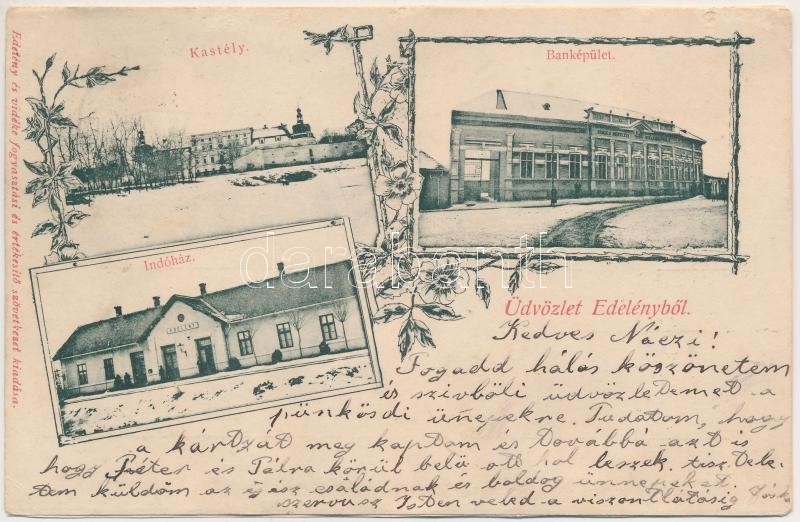 Kastély.
Banképület.
Edelény és vidéke fogyasztási és értékesítő szövetkezet kiadása.
darabanth
Indóház.
EDELÉNY
Üdvözlet Edelényből.
Kedves Náczi!
Fogadd hálás köszönetem
és szivböli üdvözletemet a
pünkösdi ünepekre. Tudatom, hogy
a kártyát meg kaptam és Továbbá azt is
hogy Péter és Pálra körül belü ott hol leszek. tisztele
tem küldöm az egész családnak és boldog ünnepeket
szervusz Isten veled a viszontlátásig Jóska